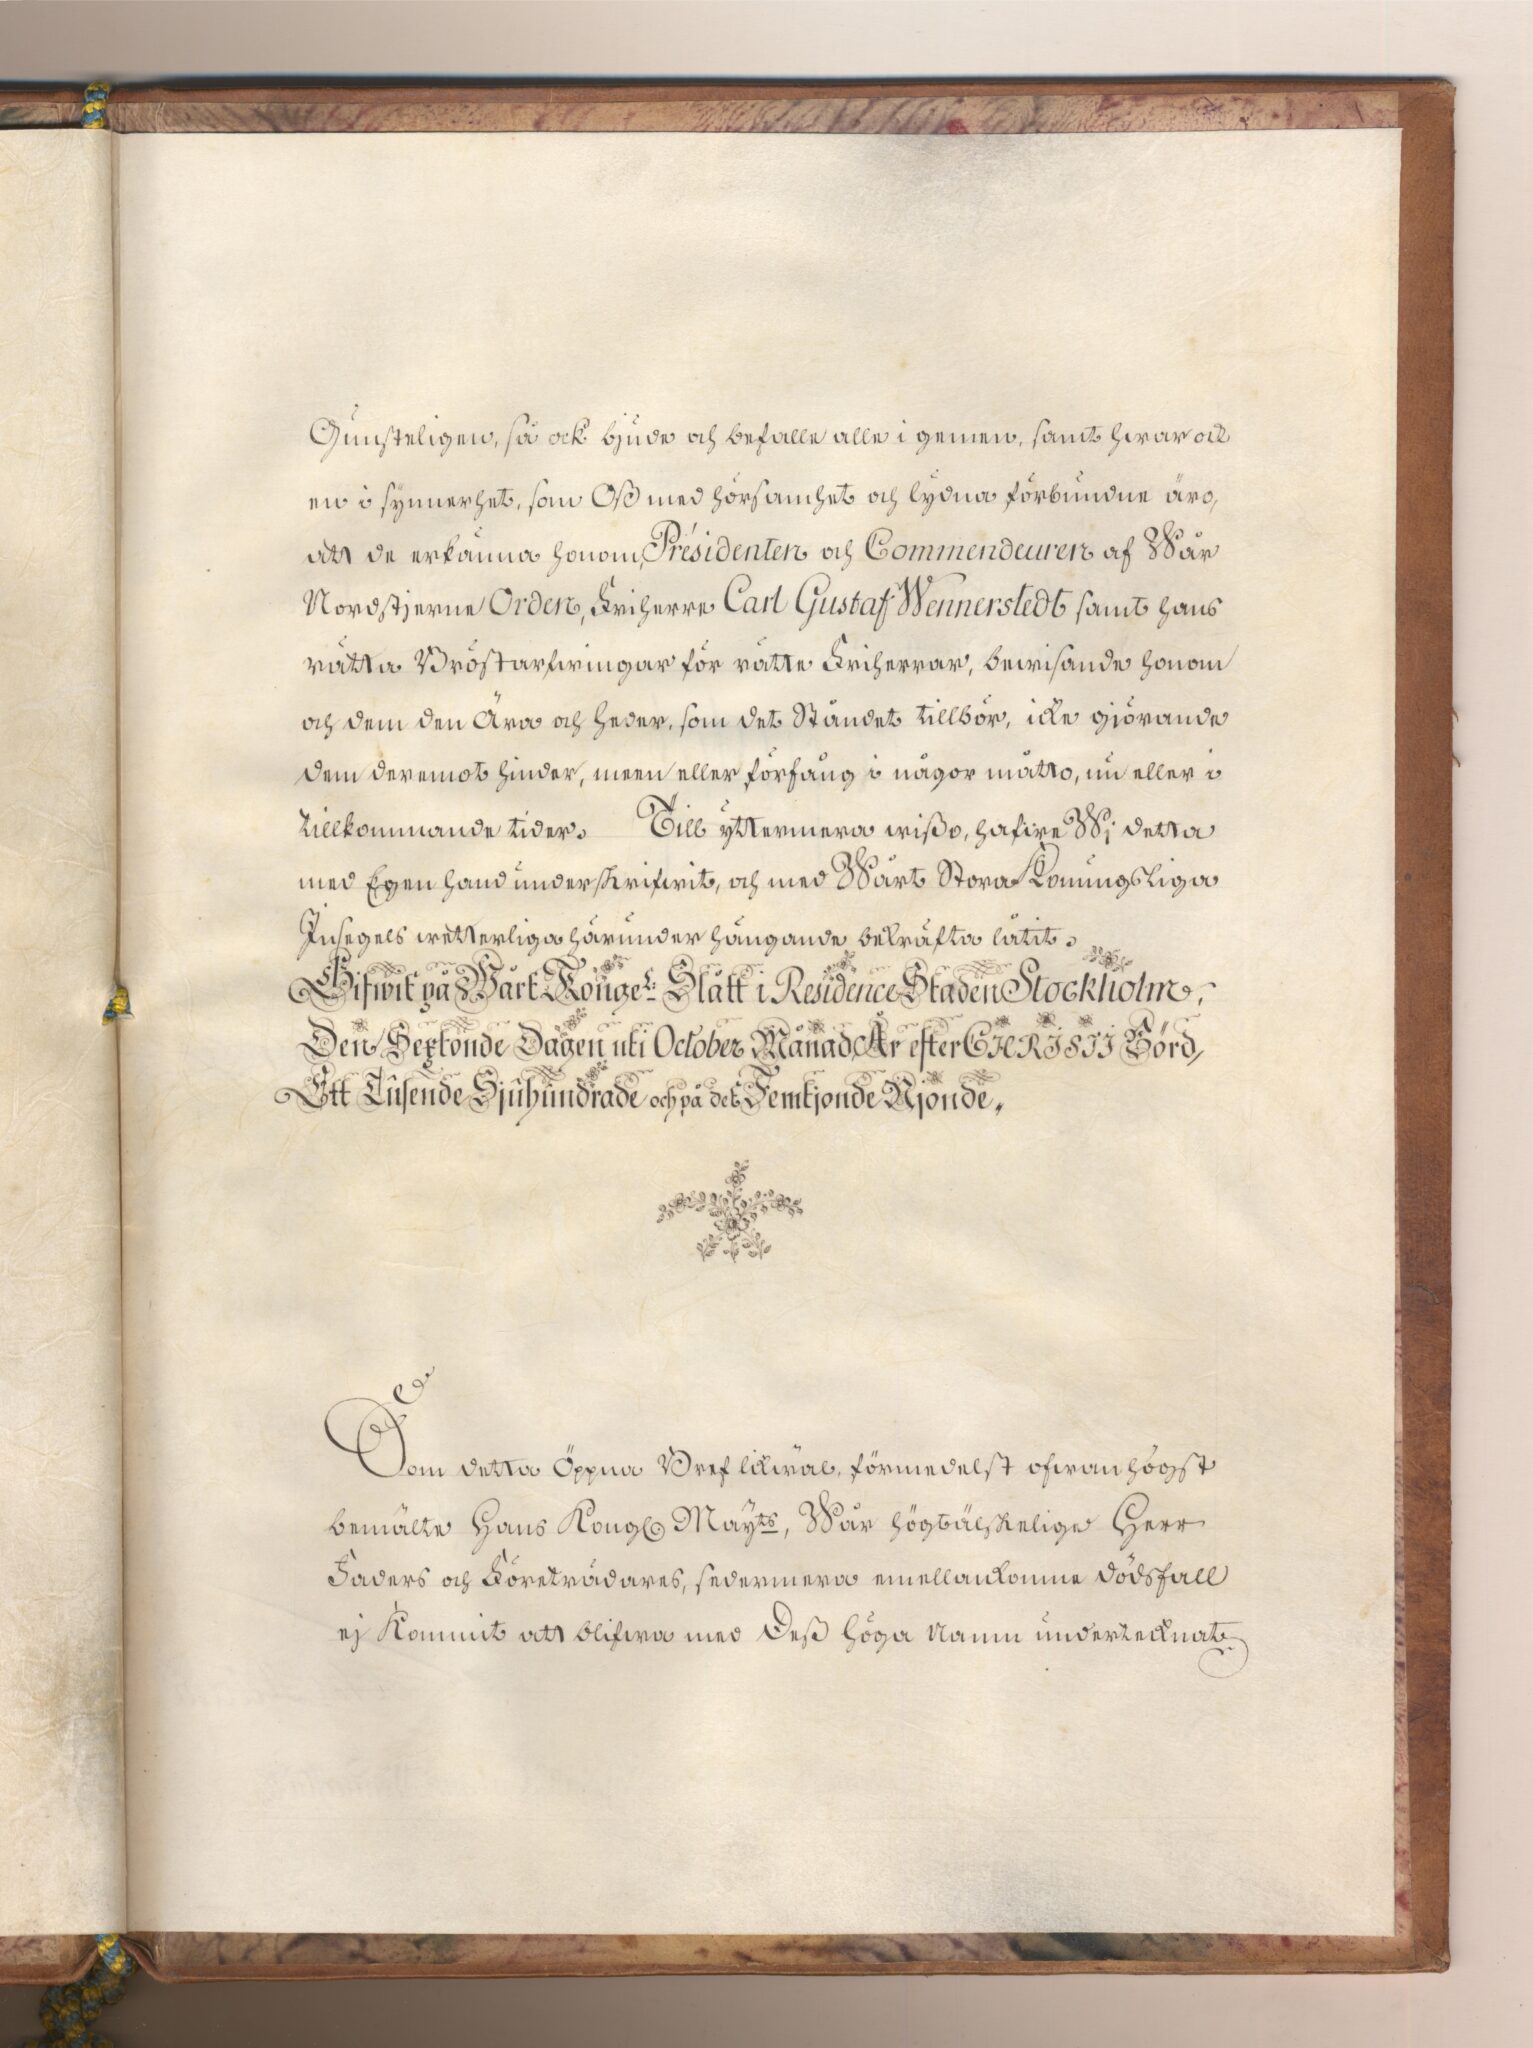 Gunsteligen, så ock bjude och befalle alle i gemen, samt hvar och
en i synnerhet, som Oß med hörsamhet och lydna förbundne äro,
att de erkänna honom, Présidenten och Commendeuren af Wår
Nordstjerne Orden, Friherre Carl Gustaf Wennerstedt samt hans
rätta Bröstarfwingar för rätte Friherrar, bewisande honom
och dem den Ära och heder, som det Ståndet tillhör, icke gjörande
dem deremot hinder, meen eller förfång i någor måtto, nu eller i
tillkommande tider. Till yttermera wißo, hafwe Wj detta
med Egen hand underskrifwit, och med Wårt Stora Konungsliga
Insegels wetterliga härunder hängande bekräfta låtit.
Gifwit på Wårt Konge: Slått i Residence Staden Stockholm,
Den Sextonde Dagen uti October Månad, År efter CHRISTI Börd,
Ett Tusende Sjuhundrade och på det Femtjonde Njonde.
Som detta Öppna Bref likwäl, förmedelst ofwanhögst
bemälte Hans Kongl. Mayts, Wår högtälskelige Herr
Faders och Företrädares, sedermera emellankomne dödsfall
ej kommit att blifwa med Deß höga Namn undertecknat